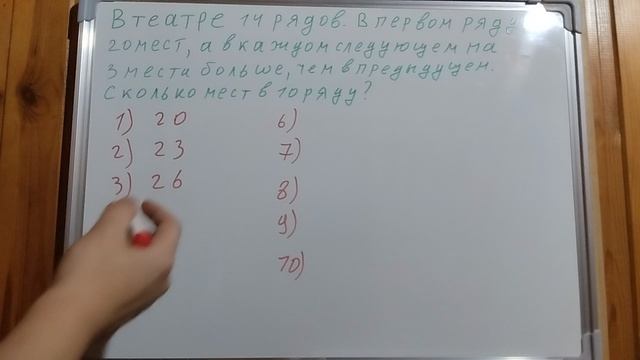 В театре 14 рядов. В первом ряду
20 мест, а в каждом следующем на
3 места больше, чем в предыдущем.
Сколько мест в 10 ряду?
1) 20
2) 23
3) 26
6)
7)
8)
9)
10)